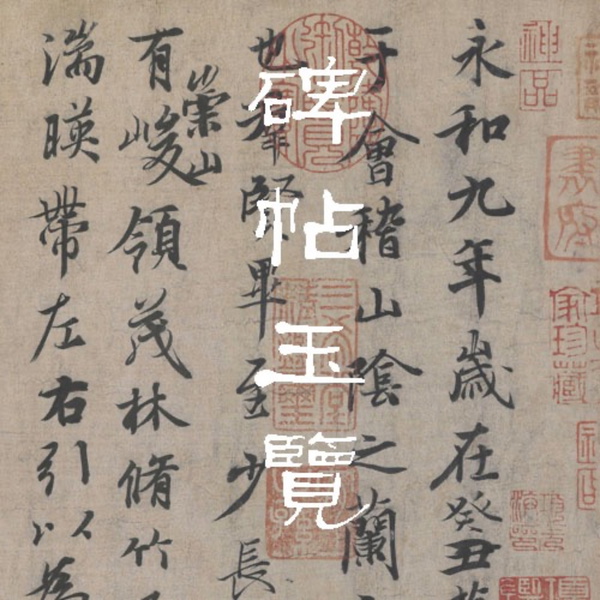 碑帖玉覽
永和九年歲在癸丑
于會稽山陰之蘭
也羣賢畢至少長
有崇山峻領茂林脩竹
湍暎帶左右引以為
神品